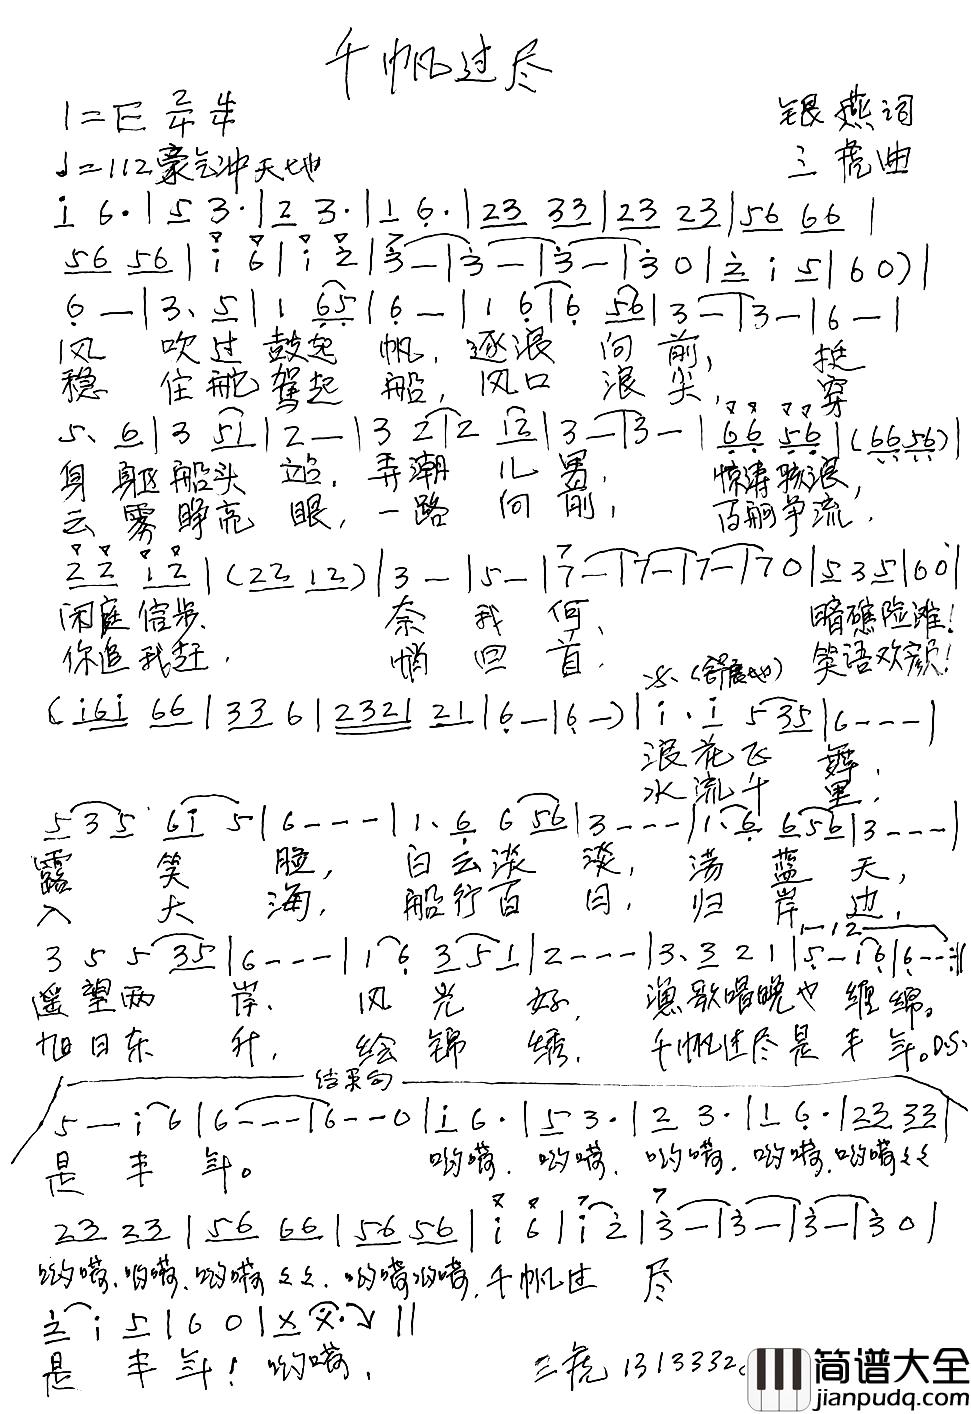 千帆过尽
1=E 2/4 4/4
银燕词
♩=112 豪气冲天地
三虎曲
i 6·|5 3·|2 3·|1 6·|23 33|23 23|56 66|
56 56|i 6|i 2|3—|3—|3—|3 0|2 i 5|6 0)|
6—|3、5|1 65|6—|1 6|6 56|3—|3—|6—|
风 吹过鼓起 帆，逐浪 向前，挺
稳 住舵驾起 船，风口 浪尖，穿
5、6|3 51|2—|3 2|2 12|3—|3—|66 56|(66 56)|
身躯船头 立，弄潮 儿男，惊涛骇浪，
云雾睁亮 眼，一路 向前，百舸争流，
22 12|(22 12)|3—|5—|7—|7—|7—|7 0|5 3 5|6 0|
闲庭信步、奈我何，暗礁险滩！
你追我赶，悄回首，笑语欢颜！
(i6i 66|33 6|2321 21|6—|6—)|i·i 5 35|6---|
(舒展地)
浪花飞 舞，
水流千 里，
5 3 5 6i 5|6---|1、6 6 56|3---|1、6 6 56|3---|
露 笑 脸，白云淡 淡，荡 蓝 天，
入 大 海，船行百 日，归 岸 边，
1—12
3 5 5 35|6---|1 6 3 5 1|2---|3、3 2 1|5—16|6--:||
遥望两 岸、风 光 好，渔歌唱晚也 缠 绵。
旭日东 升，绘 锦 绣，千帆过尽是 丰 年。D.S.
结束句
5—i 6|6---|6--0|i 6·|5 3·|2 3·|1 6·|23 33|
是 丰 年。哟嗬，哟嗬，哟嗬，哟嗬，哟嗬
23 23|56 66|56 56|i 6|i 2|3—|3—|3—|3 0|
哟嗬，哟嗬，哟嗬，哟嗬哟嗬，千帆过 尽
2 i 5|6 0|X X·||
是 丰 年！哟嗬，
三虎 1313332
简谱大全
jianpudq.com